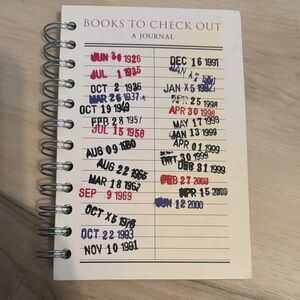 BOOKS TO CHECK OUT
A JOURNAL
JUN 30 1926
JUL 1 1935
OCT 2 1936
MAR 26 1937
OCT 19 1949
FEB 28 1957
JUL 15 1958
AUG 09 1960
AUG 22 1965
MAR 18 1967
SEP 9 1969
OCT 1976
OCT 22 1993
NOV 10 1991
DEC 16 1991
JAN
JAN 1992
1998
APR 30 1998
MAY 17 1998
JAN 13 1999
APR 01 1999
30 1999
31 1999
FEB 27 2000
APR 15 2000
JUN 12 2000